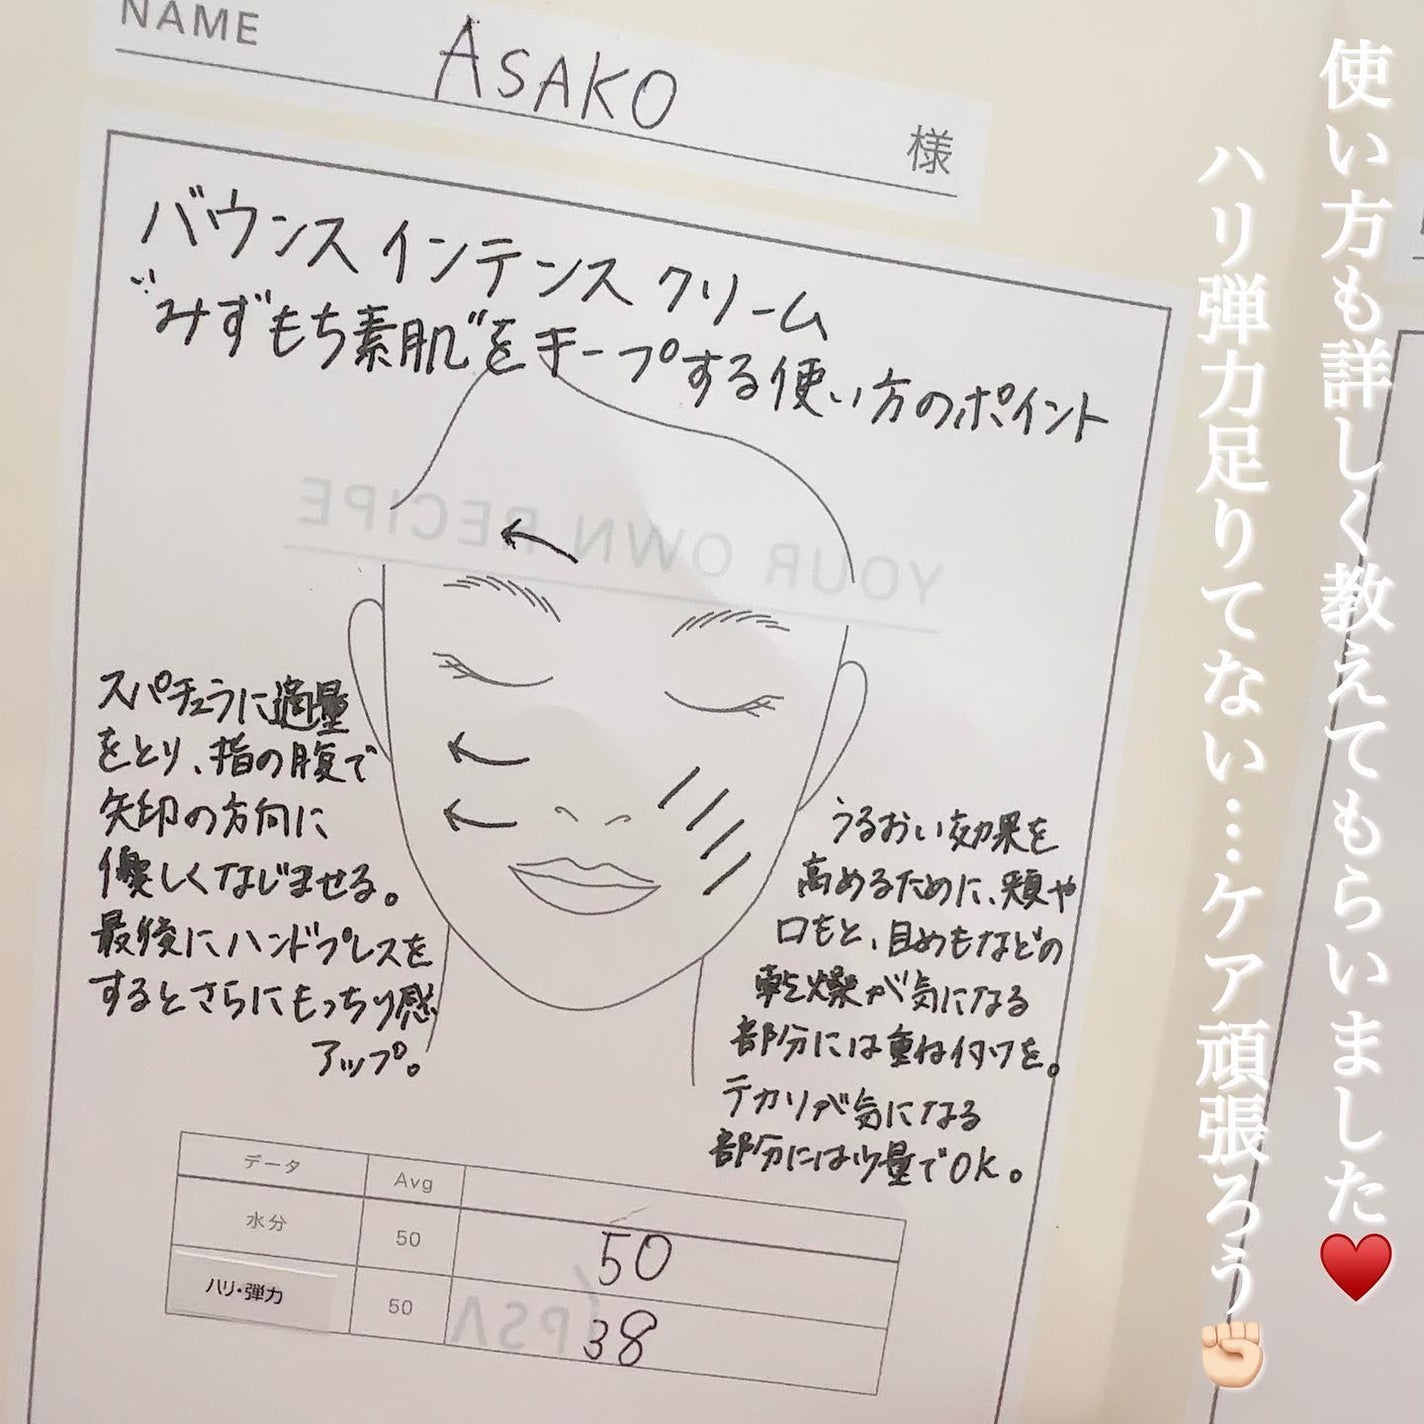 NAME ASAKO 様
バウンスインテンスクリーム
"みずもち素肌"をキープする使い方のポイント
YOUR OWN RECIPE
スパチュラに適量
をとり、指の腹で
矢印の方向に
優しくなじませる。
最後にハンドプレスを
するとさらにもっちり感
アップ。
うるおい効果を
高めるために、頬や
口もと、目めもなどの
乾燥が気になる
部分には重ね付けを。
テカリが気になる
部分には少量でOK。
データ Avg
水分 50 50
ハリ・弾力 50 38
IPSA
使い方も詳しく教えてもらいました♥️
ハリ弾力足りてない…ケア頑張ろう✊🏻